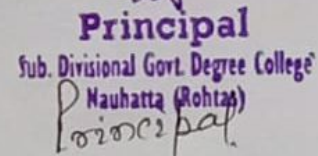 Principal
Sub. Divisional Govt. Degree College
Nauhatta (Rohtas)
Principal